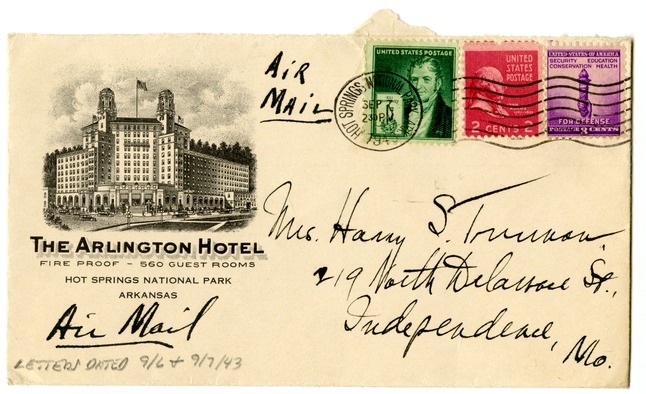 AIR
MAIL
HOT SPRINGS
SEP 7
230 P
UNITED STATES POSTAGE
UNITED
STATES
POSTAGE
2 CENTS 2
UNITED STATES OF AMERICA
SECURITY EDUCATION
CONSERVATION HEALTH
FOR DEFENSE
POSTAGE 3 CENTS
THE ARLINGTON HOTEL
FIRE PROOF - 560 GUEST ROOMS
HOT SPRINGS NATIONAL PARK
ARKANSAS
Air Mail
LETTERS DATED 9/6 + 9/7/43
Mrs. Harry S. Truman
219 North Delaware St.,
Independence,
Mo.